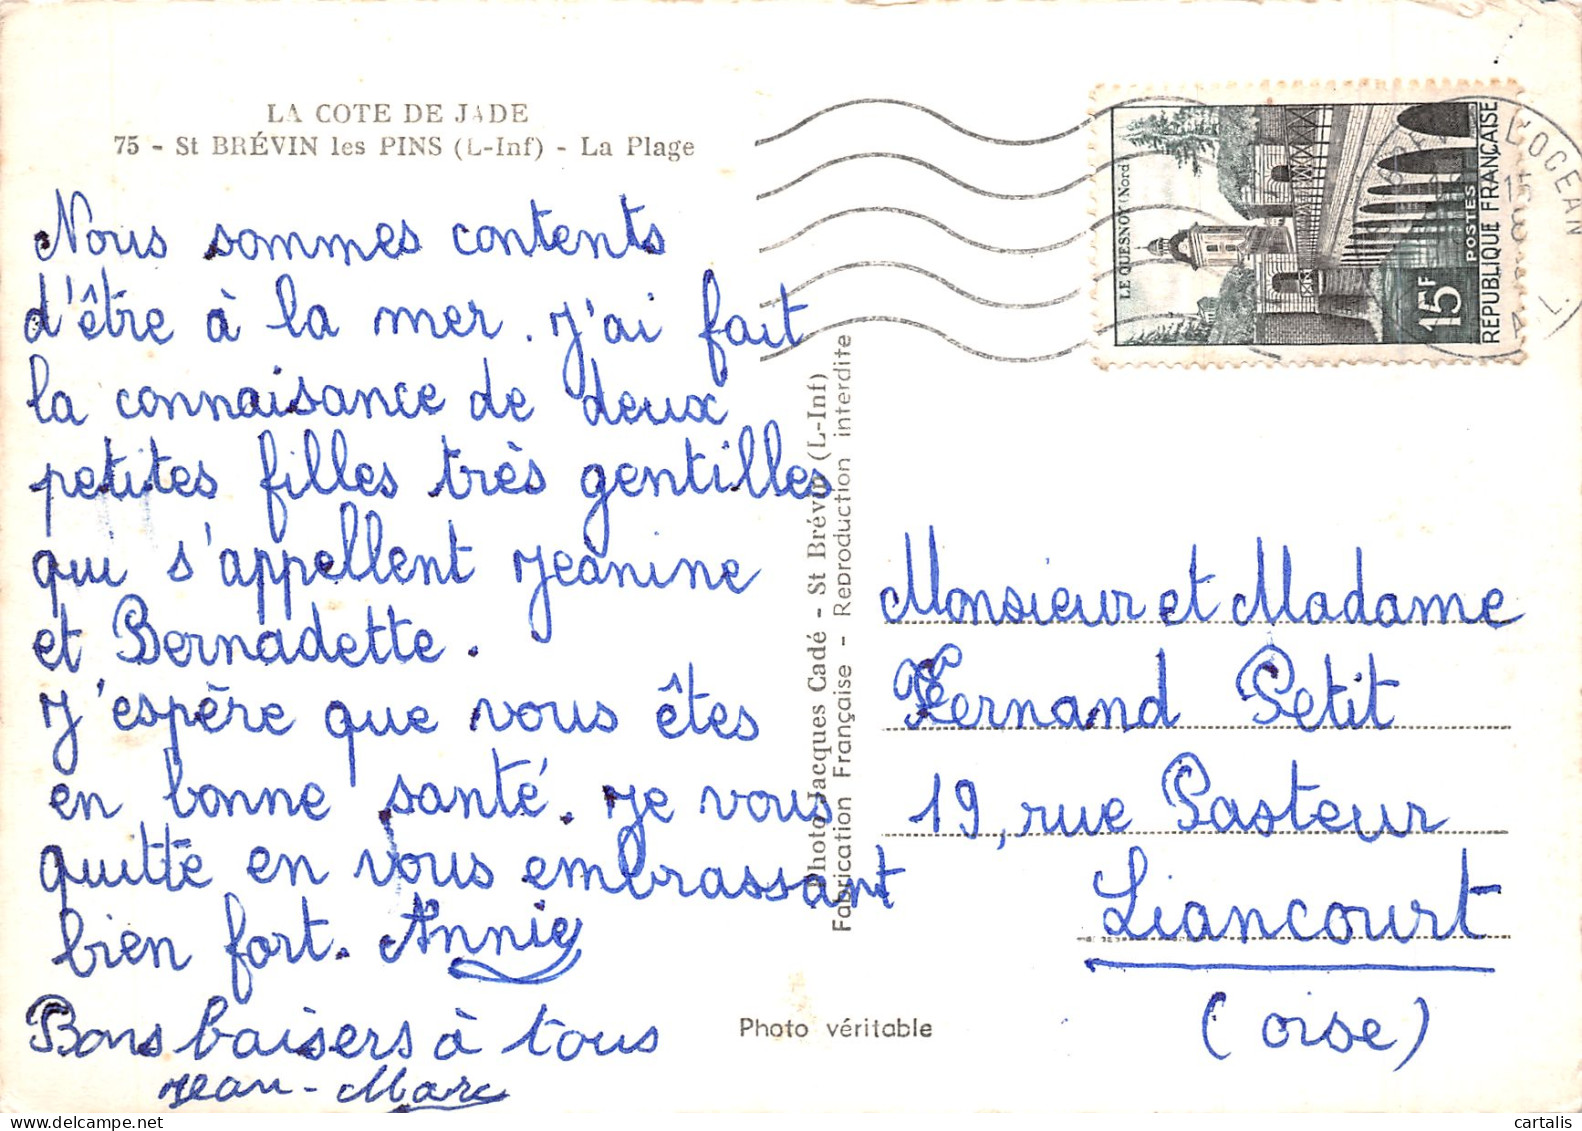 LA COTE DE JADE
75 - St BRÉVIN les PINS (L-Inf) - La Plage
Nous sommes contents
d'être à la mer. J'ai fait
la connaisance de deux
petites filles très gentilles
qui s'appellent Jeanine
et Bernadette.
J'espère que vous êtes
en bonne santé. Je vous
quitte en vous embrassant
bien fort. Annie
Bons baisers à tous
Jean-Marc
Photo Jacques Cadé - St Brévin (L-Inf)
Fabrication Française - Reproduction interdite
Photo véritable
LE QUESNOY (Nord)
15F
POSTES
REPUBLIQUE FRANÇAISE
L'OCEAN
Monsieur et Madame
Fernand Petit
19, rue Pasteur
Liancourt
(oise)
cartalis